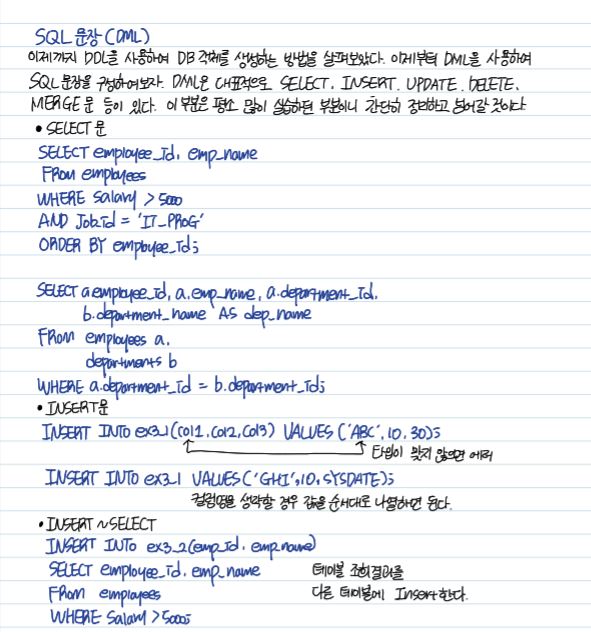 SQL 문장 (DML)
이제까지 DDL을 사용하여 DB 객체를 생성하는 방법을 살펴보았다. 이제부터 DML을 사용하여
SQL 문장을 구성하여보자. DML은 대표적으로 SELECT, INSERT, UPDATE, DELETE,
MERGE 문 등이 있다. 이 부분은 평소 많이 실습하던 부분이니 간단히 정리하고 넘어갈 것이다
• SELECT 문
SELECT employee_id, emp_name
FROM employees
WHERE salary > 5000
AND Job_id = 'IT_PROG'
ORDER BY employee_id;
SELECT a.employee_id, a.emp_name, a.department_id,
b.department_name AS dep_name
FROM employees a,
departments b
WHERE a.department_id = b.department_id;
• INSERT문
INSERT INTO ex3_1(col1, col2, col3) VALUES ('ABC', 10, 30);
타입이 맞지 않으면 에러
INSERT INTO ex3_1 VALUES('GHI', 10, SYSDATE);
컬럼명을 생략할 경우 값을 순서대로 나열하면 된다.
• INSERT ~ SELECT
INSERT INTO ex3_2(emp_id, emp_name)
SELECT employee_id, emp_name 테이블 조회결과를
FROM employees 다른 테이블에 Insert한다.
WHERE Salary > 5000;